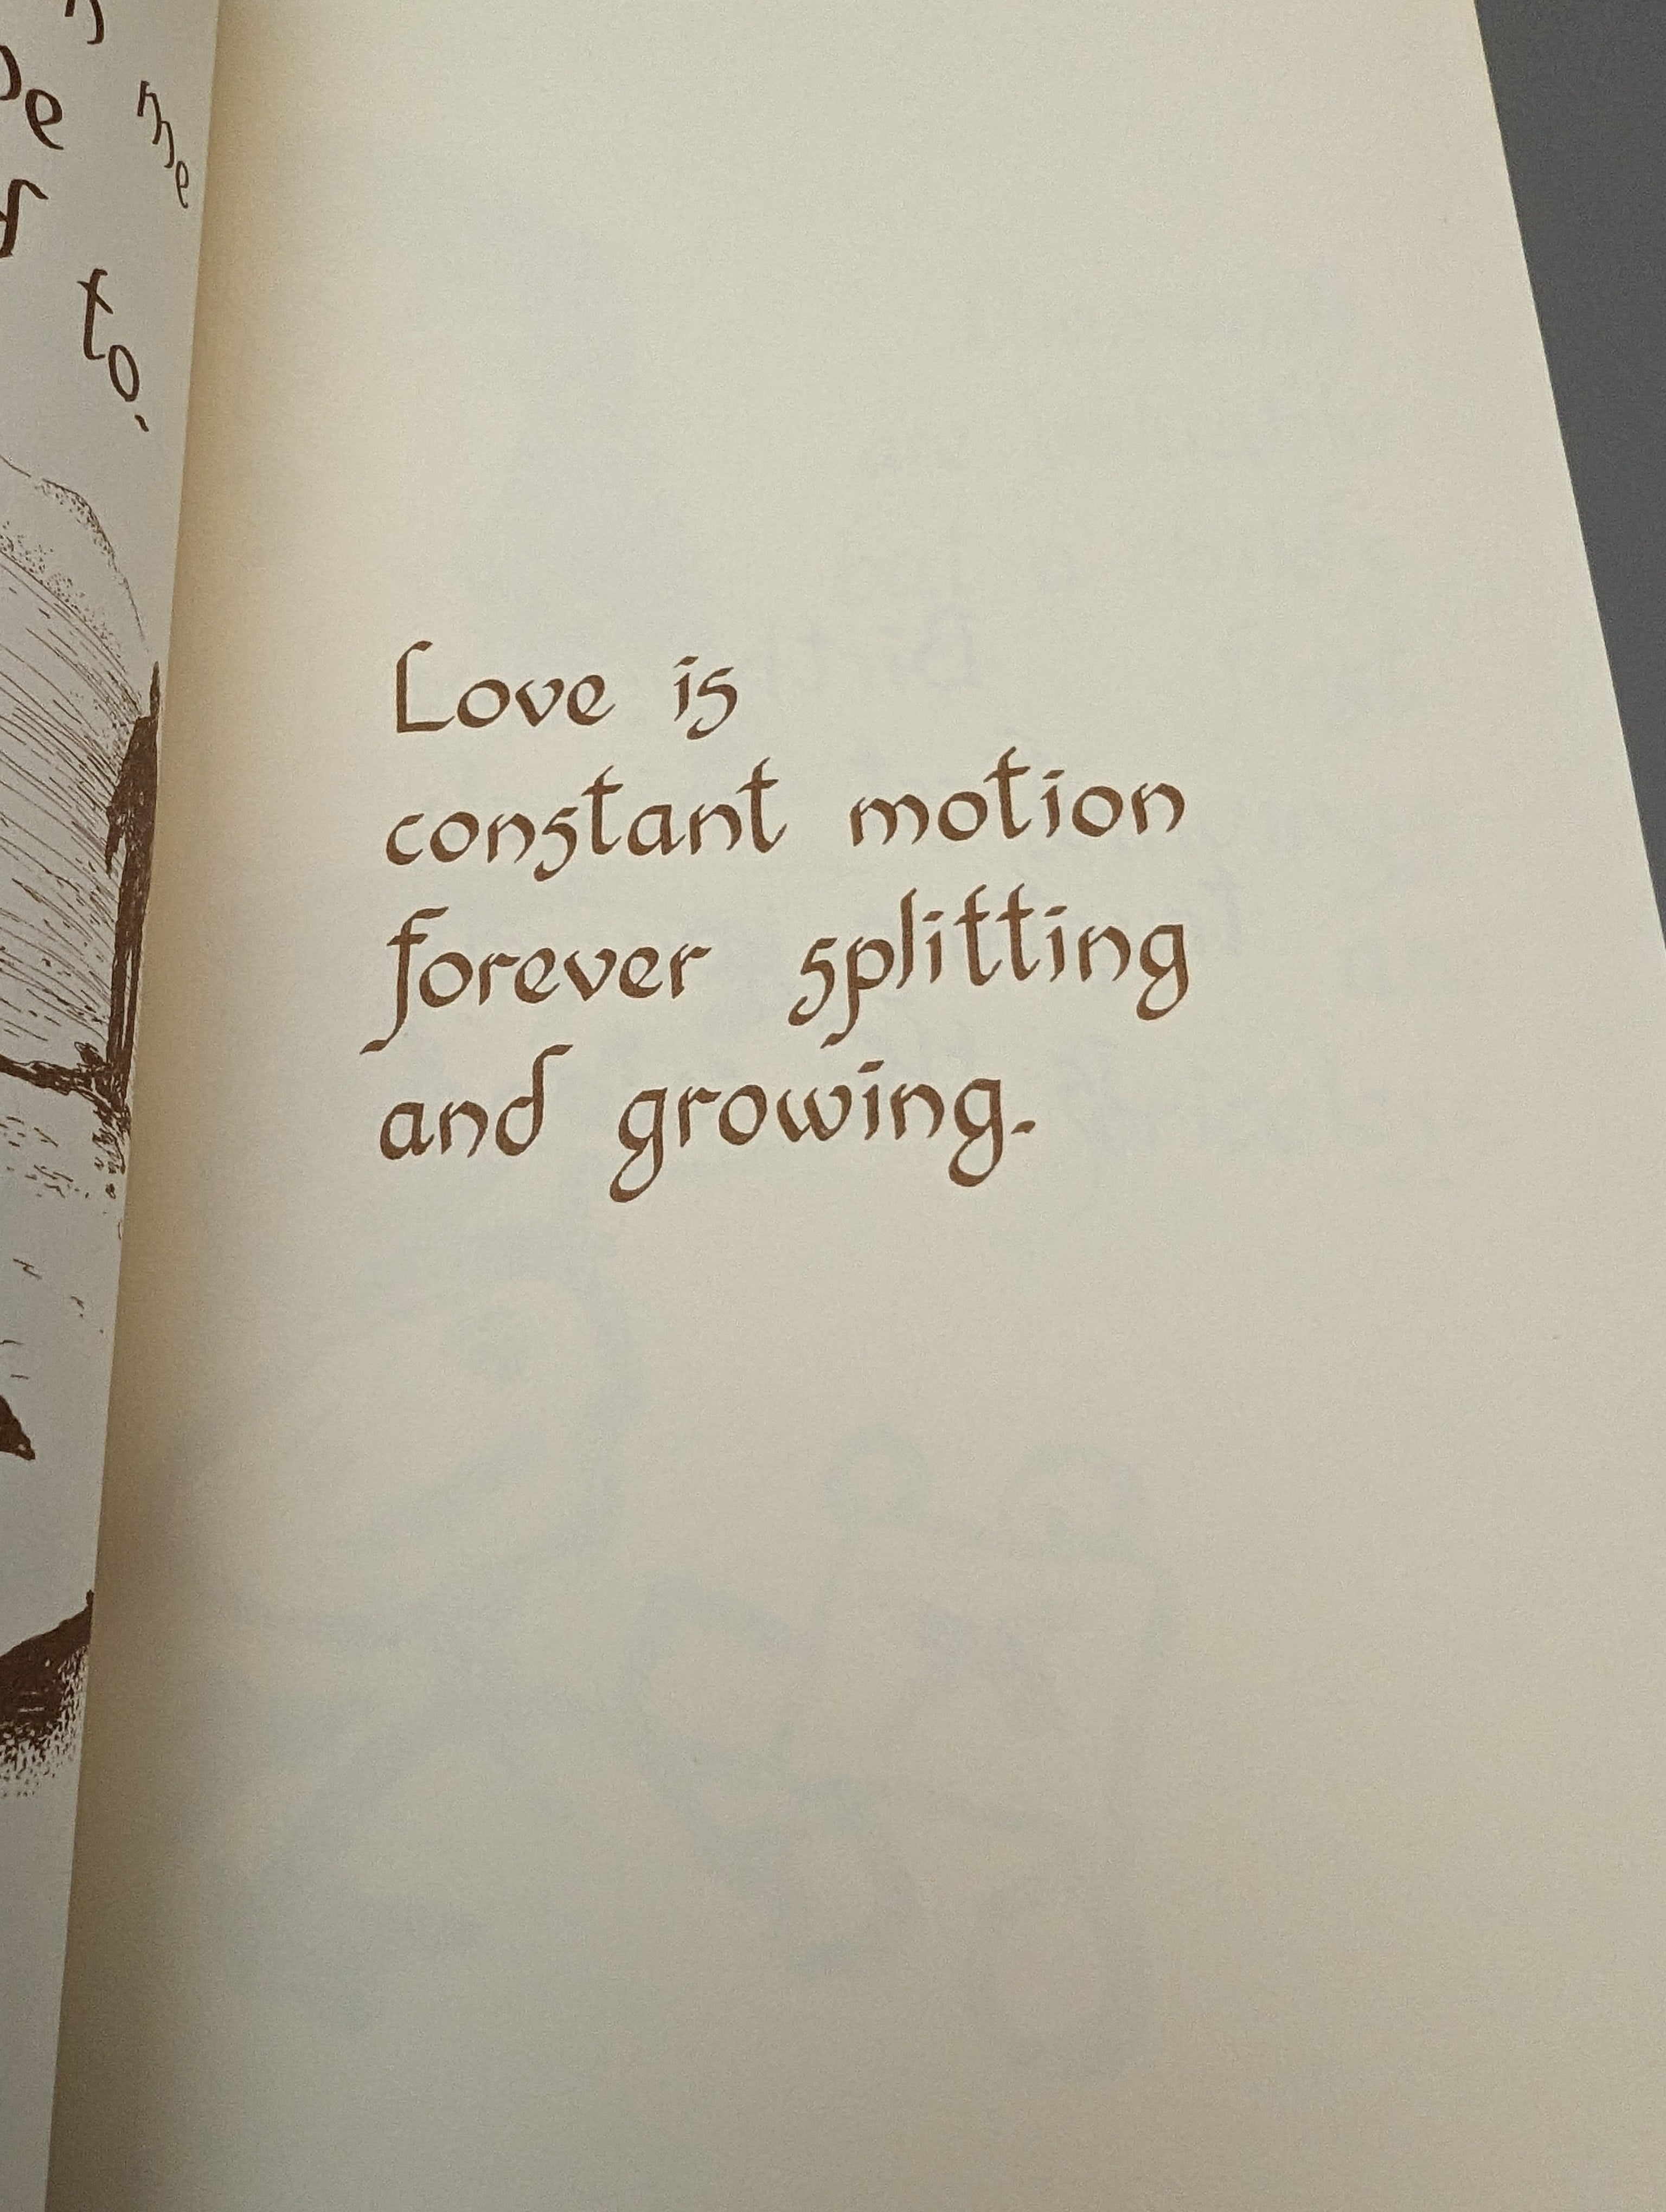 me
to.
Love is
constant motion
forever splitting
and growing.